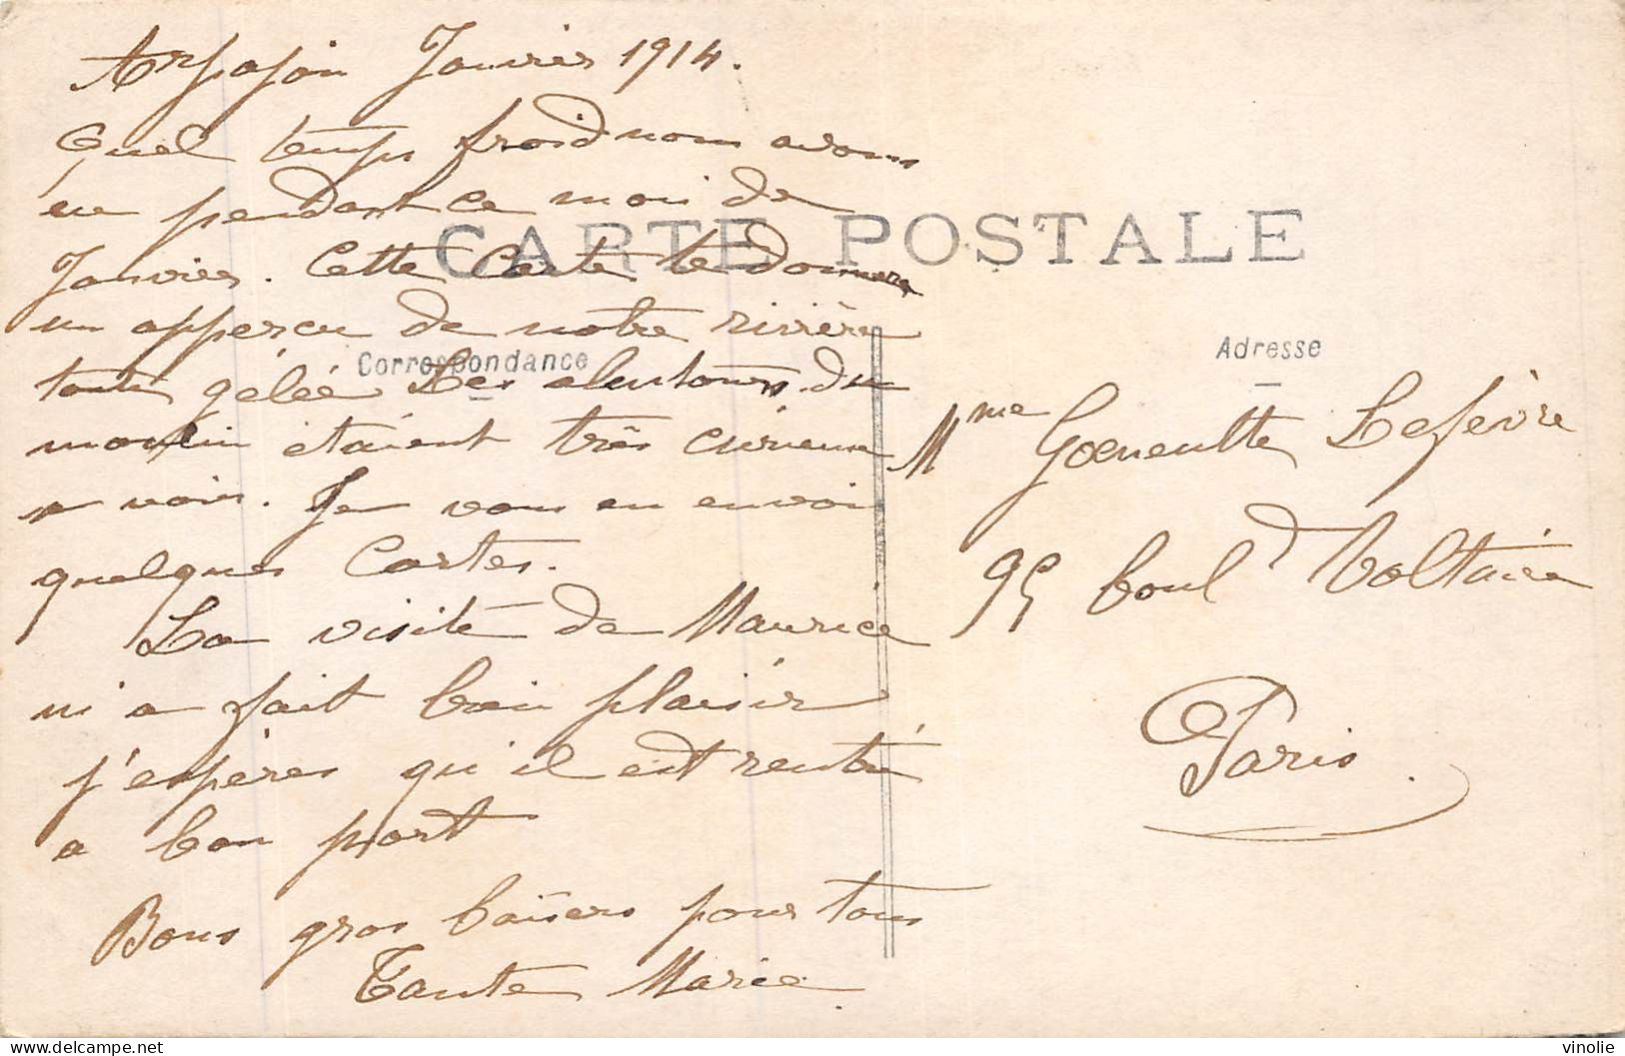 Arpajon Janvier 1914.
Quel temps froid nous avons
eu pendant ce mois de
Janvier. Cette Carte te donnera
un apperçu de notre rivière
toute gélée Les alentours du
moulin étaient très curieux
a voir. Je vous en envoi
quelques Cartes.
La visite de Maurice
m'a fait bien plaisir
j'espères qu'il est rentré
a bon port
Bons gros baisers pour tous
Tante Marie.
CARTE POSTALE
Correspondance
Adresse
Mme Goeneutte Lefèvre
95 bould Voltaire
Paris.
delcampe.net
vinolie